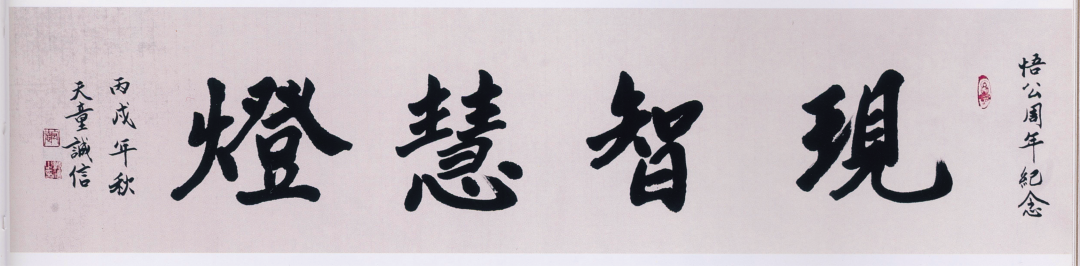 悟公周年紀念
現智慧燈
丙戌年秋
天童誠信